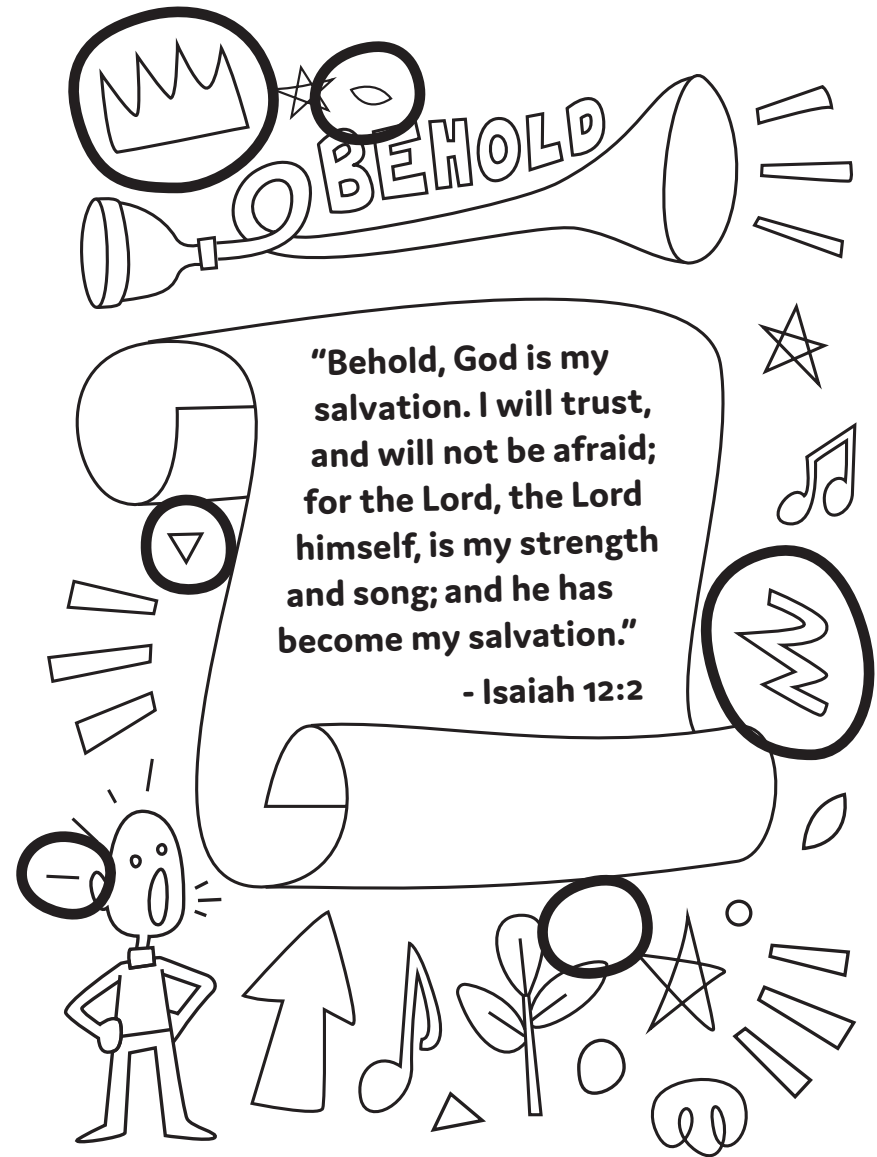 BEHOLD
“Behold, God is my
salvation. I will trust,
and will not be afraid;
for the Lord, the Lord
himself, is my strength
and song; and he has
become my salvation.”
- Isaiah 12:2